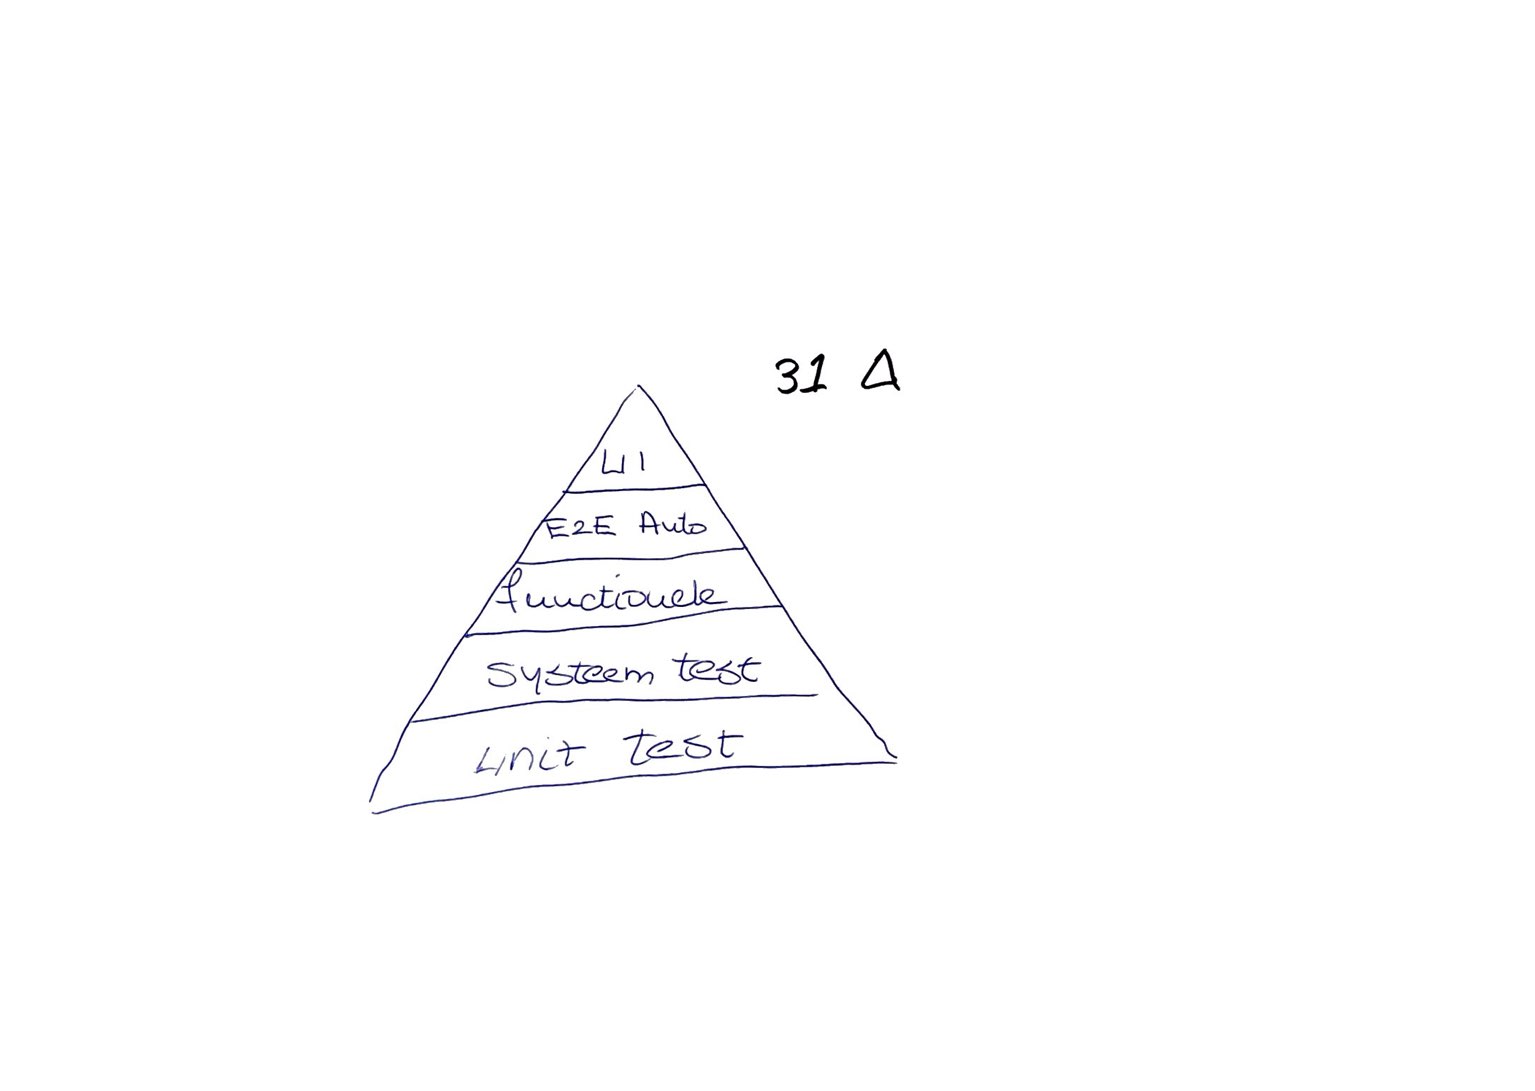 31 Δ
UI
E2E Auto
functionele
Systeem test
Unit test